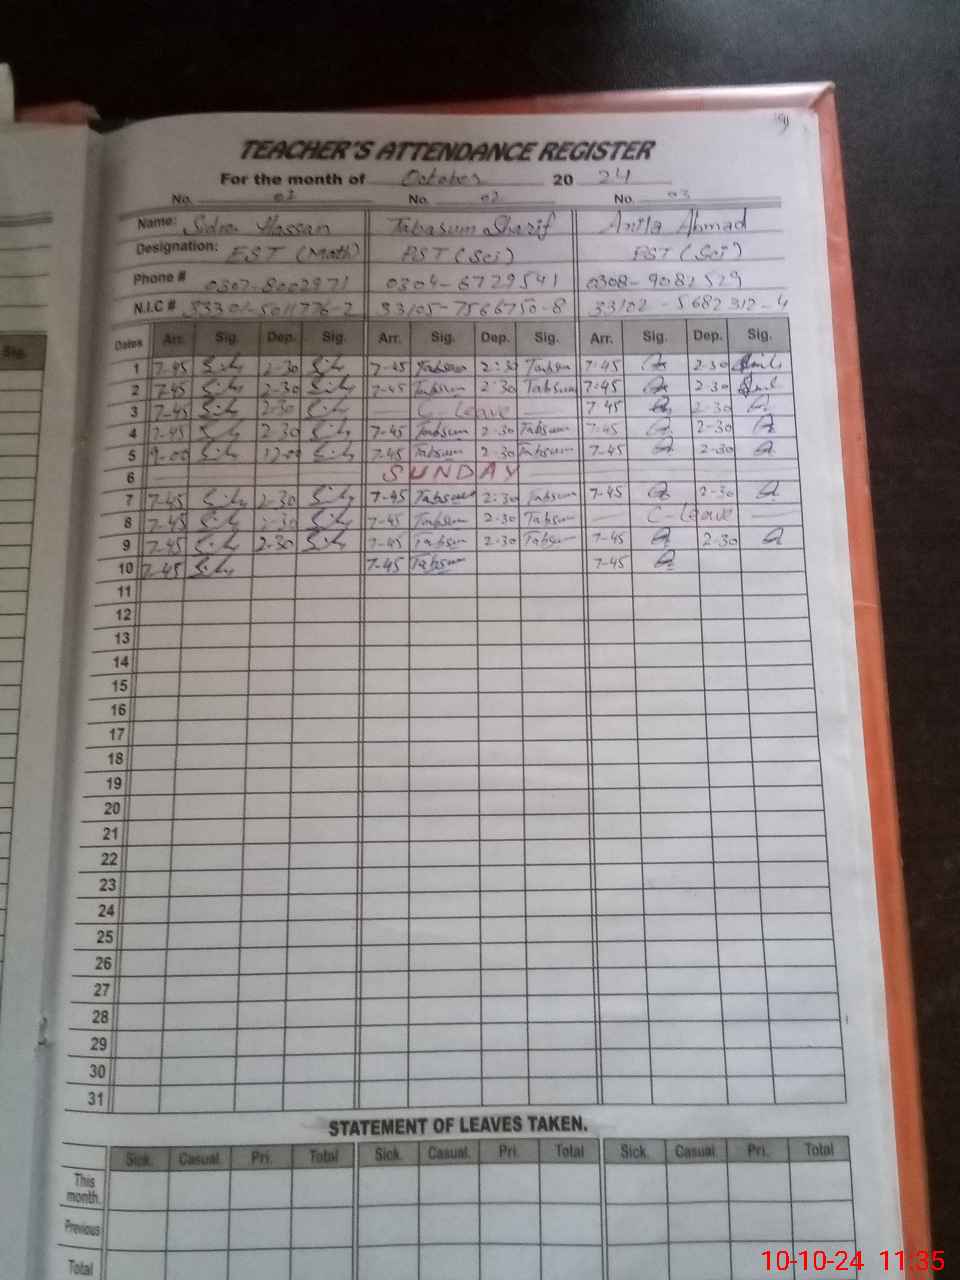 TEACHER'S ATTENDANCE REGISTER
For the month of October 20 24
No. No. 02 No. 03
Name: Sidra Hassan Tabasum Sharif Anila Ahmad
Designation: EST (Math) (Sci) (Sci)
Phone # 0304-6729541 0308-9082529
N.I.C # 33105-7566750-8 33102-5682312-4
Sig.
Dates Arr. Sig. Dep. Sig. Arr. Sig. Dep. Sig. Arr. Sig. Dep. Sig.
1 7-45 2-30 7-45 Tabsum 2:30 Tabsum 7-45 2-30
2 7-45 2-30 7-45 Tabsum 2:30 Tabsum 7-45 2-30
3 7-45 2-30 C-Leave 7-45 2-30
4 7-45 2-30 7-45 Tabsum 2-30 Tabsum 7-45 2-30
5 9-00 12-00 7-45 Tabsum 2-30 Tabsum 7-45 2-30
6 SUNDAY
7 7-45 2-30 7-45 Tabsum 2:30 Tabsum 7-45 2-30
8 7-45 2-30 7-45 Tabsum 2-30 Tabsum C-leave
9 7-45 2-30 7-45 Tabsum 2-30 Tabsum 7-45 2-30
10 7-45 7-45 Tabsum 7-45
11
12
13
14
15
16
17
18
19
20
21
22
23
24
25
26
27
28
29
30
31
STATEMENT OF LEAVES TAKEN.
Sick. Casual. Pri. Total Sick. Casual. Pri. Total Sick. Casual. Pri. Total
This
month.
Previous
Total
10-10-24 11:35